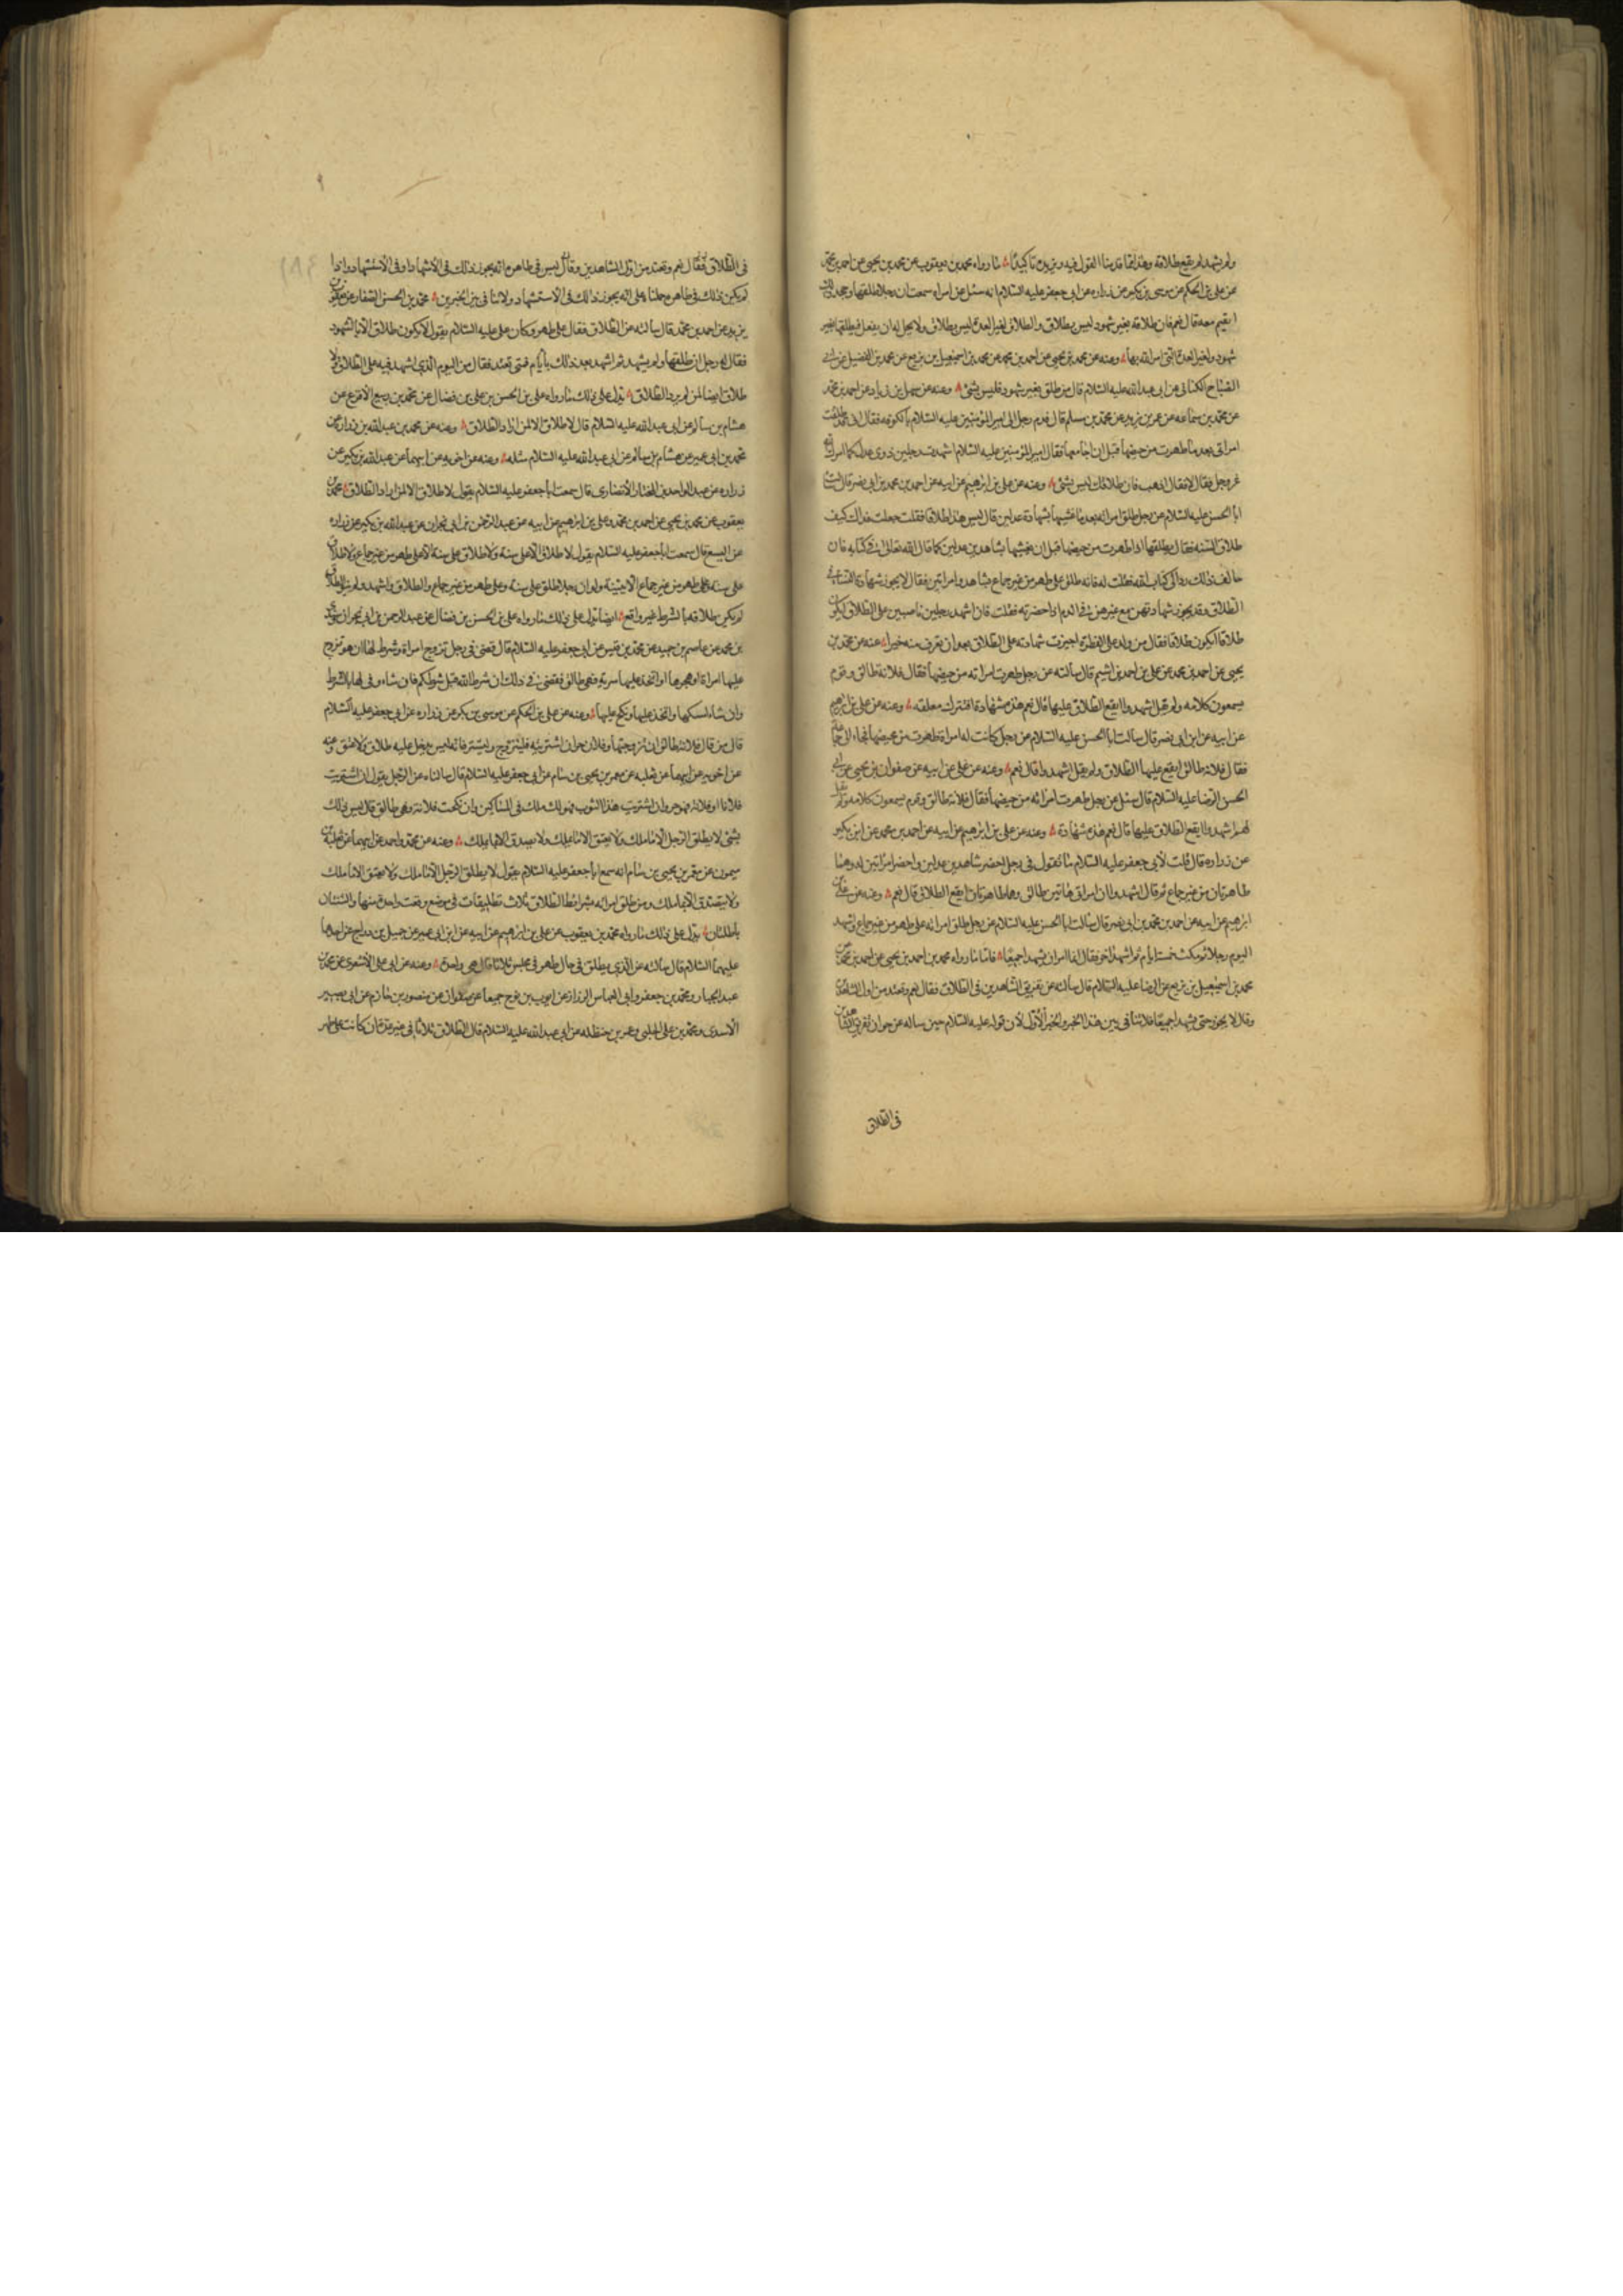 ولم يشهد لم يقع طلاقه وهذا قد قدمنا القول فيه ونزيده تاكيدًا ما رواه محمد بن يعقوب عن محمد بن يحيى عن احمد بن محمد
عن علي بن الحكم عن موسى بن بكر عن زرارة عن ابي جعفر عليه السلام انه سئل عن امراة سمعت ان رجلا طلقها وجحد ذلك
ا يقيم معه قال نعم فان طلاقه بغير شهود ليس بطلاق والطلاق لغير العدة ليس بطلاق ولا يحل له ان يفعل فيطلقها بغير
شهود ولغير العدة التي امر الله بها وعنه عن محمد بن يحيى عن احمد بن محمد عن محمد بن اسمعيل بن بزيع عن محمد بن الفضيل عن ابي
الصباح الكناني عن ابي عبد الله عليه السلام قال من طلق بغير شهود فليس بشئ وعنه عن سهل بن زياد عن احمد بن محمد
عن محمد بن سماعه عن عمر بن يزيد عن محمد بن مسلم قال قدم رجل الى امير المؤمنين عليه السلام بالكوفه فقال اني طلقت
امراتي بعد ما طهرت من حيضها قبل ان اجامعها فقال امير المؤمنين عليه السلام اشهدت رجلين ذوي عدل كما امر الله
عز وجل فقال لا فقال اذهب فان طلاقك ليس بشئ وعنه عن علي بن ابرهيم عن ابيه عن احمد بن محمد بن ابي نصر قال سالت
ابا الحسن عليه السلام عن رجل طلق امراته بعد ما غشيها بشهادة عدلين قال ليس هذا طلاقا فقلت جعلت فداك كيف
طلاق السنه فقال يطلقها اذا طهرت من حيضها قبل ان يغشيها بشاهدين عدلين كما قال الله تعالى في كتابه فان
خالف ذلك رد الى كتاب الله فقلت له فانه طلق على طهر من غير جماع بشاهد وامراتين فقال لا يجوز شهادة النساء في
الطلاق وقد يجوز شهادتهن مع غيرهن في الدم اذا حضرته فقلت فان اشهد رجلين ناصبين على الطلاق ايكون
طلاقا ليكون طلاقا فقال من ولد على الفطرة اجيزت شهادته على الطلاق بعد ان تعرف منه خيرا وعنه عن محمد بن
يحيى عن احمد بن محمد عن علي بن احمد بن اشيم قال سالته عن رجل طهرت امراته من حيضها فقال فلانه طالق وقوم
يسمعون كلامه ولم يقل اشهدوا ايقع الطلاق عليها قال نعم هذه شهادة افتترك معلقه وعنه عن علي بن ابرهيم
عن ابيه عن ابن ابي نصر قال سالت ابا الحسن عليه السلام عن رجل كانت له امراة طهرت من محيضها فجاء الى جماعة
فقال فلانه طالق ايقع عليها الطلاق ولم يقل اشهدوا قال نعم وعنه عن علي عن ابيه عن صفوان بن يحيى عن ابي
الحسن الرضا عليه السلام قال سئل عن رجل طهرت امراته من حيضها فقال فلانه طالق وقوم يسمعون كلامه ولم يقل
لهم اشهدوا ايقع الطلاق عليها قال نعم هذه شهادة وعنه عن علي بن ابرهيم عن ابيه عن احمد بن محمد عن ابن بكير
عن زراره قال قلت لابي جعفر عليه السلام ما تقول في رجل احضر شاهدين عدلين واحضر امراتين له وهما
طاهرتان من غير جماع ثم قال اشهدوا ان امراتي هاتين طالق وهما طاهرتان ايقع الطلاق قال نعم وعنه عن علي بن
ابرهيم عن ابيه عن احمد بن محمد بن ابي نصر قال سالت ابا الحسن عليه السلام عن رجل طلق امراته على طهر من غير جماع واشهد
اليوم رجلا ثم مكث خمسة ايام ثم اشهد اخر فقال انما امر ان يشهدا جميعًا فاما ما رواه محمد بن احمد بن يحيى عن احمد بن محمد عن
محمد بن اسمعيل بن بزيع عن الرضا عليه السلام قال سالته عن تفريق الشاهدين في الطلاق فقال نعم وتعتد من اول الشاهدين
وقال لا يجوز حتى يشهدا جميعًا فلا تنافي بين هذا الخبر والخبر الاول لان قوله عليه السلام حين ساله عن جواز تفريق الشاهدين
في الطلاق
في الطلاق فقال نعم وتعتد من اول الشاهدين وقال ليس في ظاهره انه يجوز ذلك في الاشهاد او في الاستشهاد واذا
لم يكن ذلك في ظاهره حملنا على انه يجوز ذلك في الاستشهاد ولا تنافي بين الخبرين محمد بن الحسن الصفار عن يعقوب بن
يزيد عن احمد بن محمد قال سالته عن الطلاق فقال على طهر وكان علي عليه السلام يقول لا يكون طلاق الا بالشهود
فقال له رجل ان طلقها ولم يشهد ثم اشهد بعد ذلك بأيام فمتى تعتد فقال من اليوم الذي اشهد فيه على الطلاق ولا
طلاق ايضا لمن لم يرد الطلاق يدل على ذلك ما رواه علي بن الحسن بن علي بن فضال عن محمد بن ربيع الاقرع عن
هشام بن سالم عن ابي عبد الله عليه السلام قال لا طلاق الا لمن اراد الطلاق وعنه عن محمد بن عبد الله بن زرارة عن
محمد بن ابي عمير عن هشام بن سالم عن ابي عبد الله عليه السلام مثله وعنه عن اخويه عن ابيهما عن عبد الله بن بكير عن
زراره عن عبد الواحد بن المختار الانصاري قال سمعت ابا جعفر عليه السلام يقول لا طلاق الا لمن اراد الطلاق محمد بن
يعقوب عن محمد بن يحيى عن احمد بن محمد وعلي بن ابرهيم عن ابيه عن عبد الرحمن بن ابي نجران عن عبد الله بن بكير عن زراره
عن اليسع قال سمعت ابا جعفر عليه السلام يقول لا طلاق الا على سنة ولا طلاق على سنة الا على طهر من غير جماع ولا طلاق
على سنة وعلى طهر من غير جماع الا ببينة ولو ان رجلا طلق على سنة وعلى طهر من غير جماع والطلاق واشهد ولم ينو الطلاق
لم يكن طلاقه بالشرط غير واقع ايضا يدل على ذلك ما رواه علي بن الحسن بن فضال عن عبد الرحمن بن ابي نجران وسندي
بن محمد عن عاصم بن حميد عن محمد بن قيس عن ابي جعفر عليه السلام قال قضى في رجل تزوج امراة وشرط لها ان هو تزوج
عليها امراة او هجرها او اتخذ عليها سرية فهي طالق فقضى في ذلك ان شرط الله قبل شرطكم فان شاء وفى لها بالشرط
وان شاء امسكها واتخذ عليها ونكح عليها وعنه عن علي بن الحكم عن موسى بن بكر عن زراره عن ابي جعفر عليه السلام
قال من قال فلانة طالق ان تزوجتها وفلان حر ان اشتريته فليتزوج وليشتر فانه ليس يدخل عليه طلاق ولا عتق وعنه
عن اخويه عن ابيهما عن ثعلبه عن معمر بن يحيى بن سام عن ابي جعفر عليه السلام قال سالناه عن الرجل يقول ان اشتريت
فلانا او فلانة فهو حر وان اشتريت هذا الثوب فهو لك ملك في المساكين وان نكحت فلانة وهي طالق قال ليس ذلك
بشئ لا يطلق الرجل الا ما ملك ولا يعتق الا ما يملك ولا يصدق الا ما يملك وعنه عن محمد واحمد عن ابيهما عن ثعلبة بن
ميمون عن معمر بن يحيى بن سام انه سمع ابا جعفر عليه السلام يقول لا يطلق الرجل الا ما ملك ولا يعتق الا ما ملك
ولا يتصدق الا بما ملك ومن طلق امراته بشرائط الطلاق ثلاث تطليقات في موضع وقعت واحدة منها والثنتان
باطلتان يدل على ذلك ما رواه محمد بن يعقوب عن علي بن ابرهيم عن ابيه عن ابن ابي عمير عن جميل بن دراج عن احدهما
عليهما السلام قال سالته عن الذي يطلق في حال طهر في مجلس ثلاثا قال هي واحدة وعنه عن ابي علي الاشعري عن محمد بن
عبد الجبار ومحمد بن جعفر وابي العباس الرزاز عن ايوب بن نوح جميعا عن صفوان عن منصور بن حازم عن ابي بصير
الاسدي ومحمد بن علي الحلبي وعمر بن حنظله عن ابي عبد الله عليه السلام قال الطلاق ثلاثا في غير عدة ان كانت على طهر